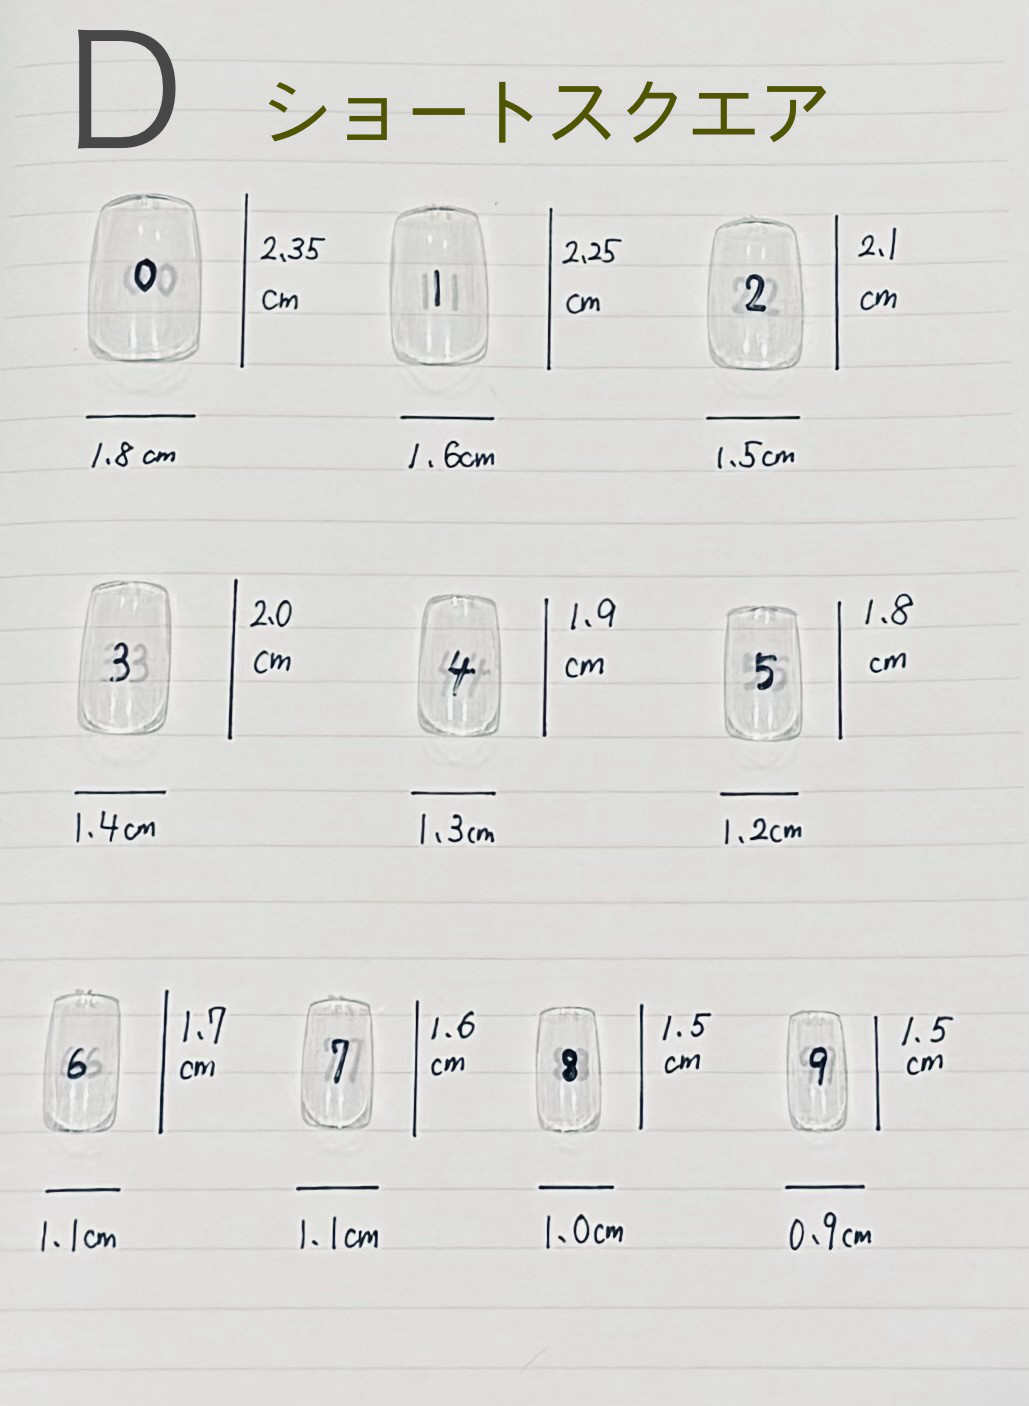 D ショートスクエア
0 2.35 cm 1 2.25 cm 2 2.1 cm
1.8cm 1.6cm 1.5cm
3 2.0 cm 4 1.9 cm 5 1.8 cm
1.4cm 1.3cm 1.2cm
6 1.7 cm 7 1.6 cm 8 1.5 cm 9 1.5 cm
1.1cm 1.1cm 1.0cm 0.9cm